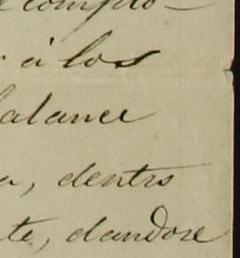 compro-
á los
balance
a, dentro
te, dandose